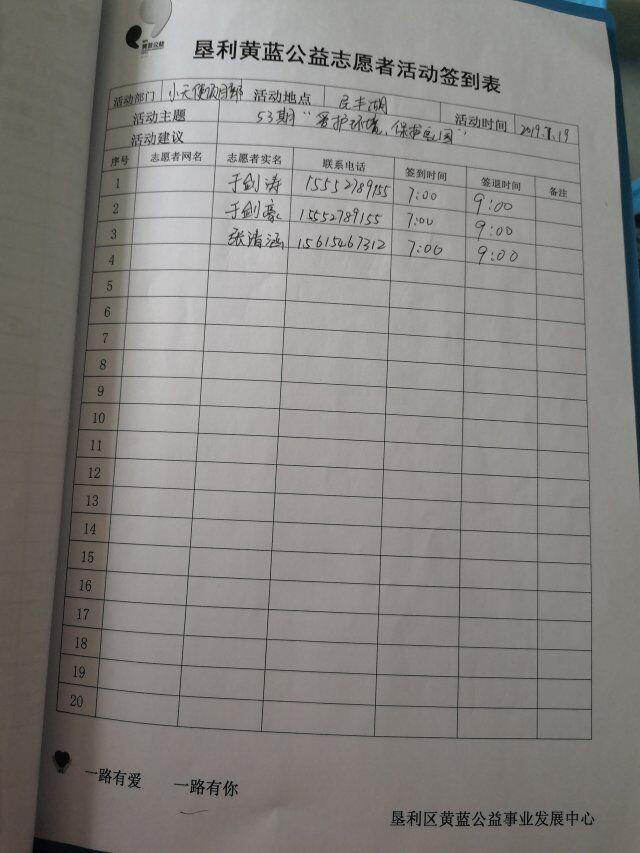 黄蓝公益
垦利黄蓝公益志愿者活动签到表
活动部门 小天使项目部 活动地点 民丰湖 活动时间 2019.8.19
活动主题 53期“爱护环境,保护家园”
活动建议
序号 志愿者网名 志愿者实名 联系电话 签到时间 签退时间 备注
1 于剑涛 15552789155 7:00 9:00
2 于剑豪 15552789155 7:00 9:00
3 张清涵 15615467312 7:00 9:00
4
5
6
7
8
9
10
11
12
13
14
15
16
17
18
19
20
一路有爱 一路有你
垦利区黄蓝公益事业发展中心